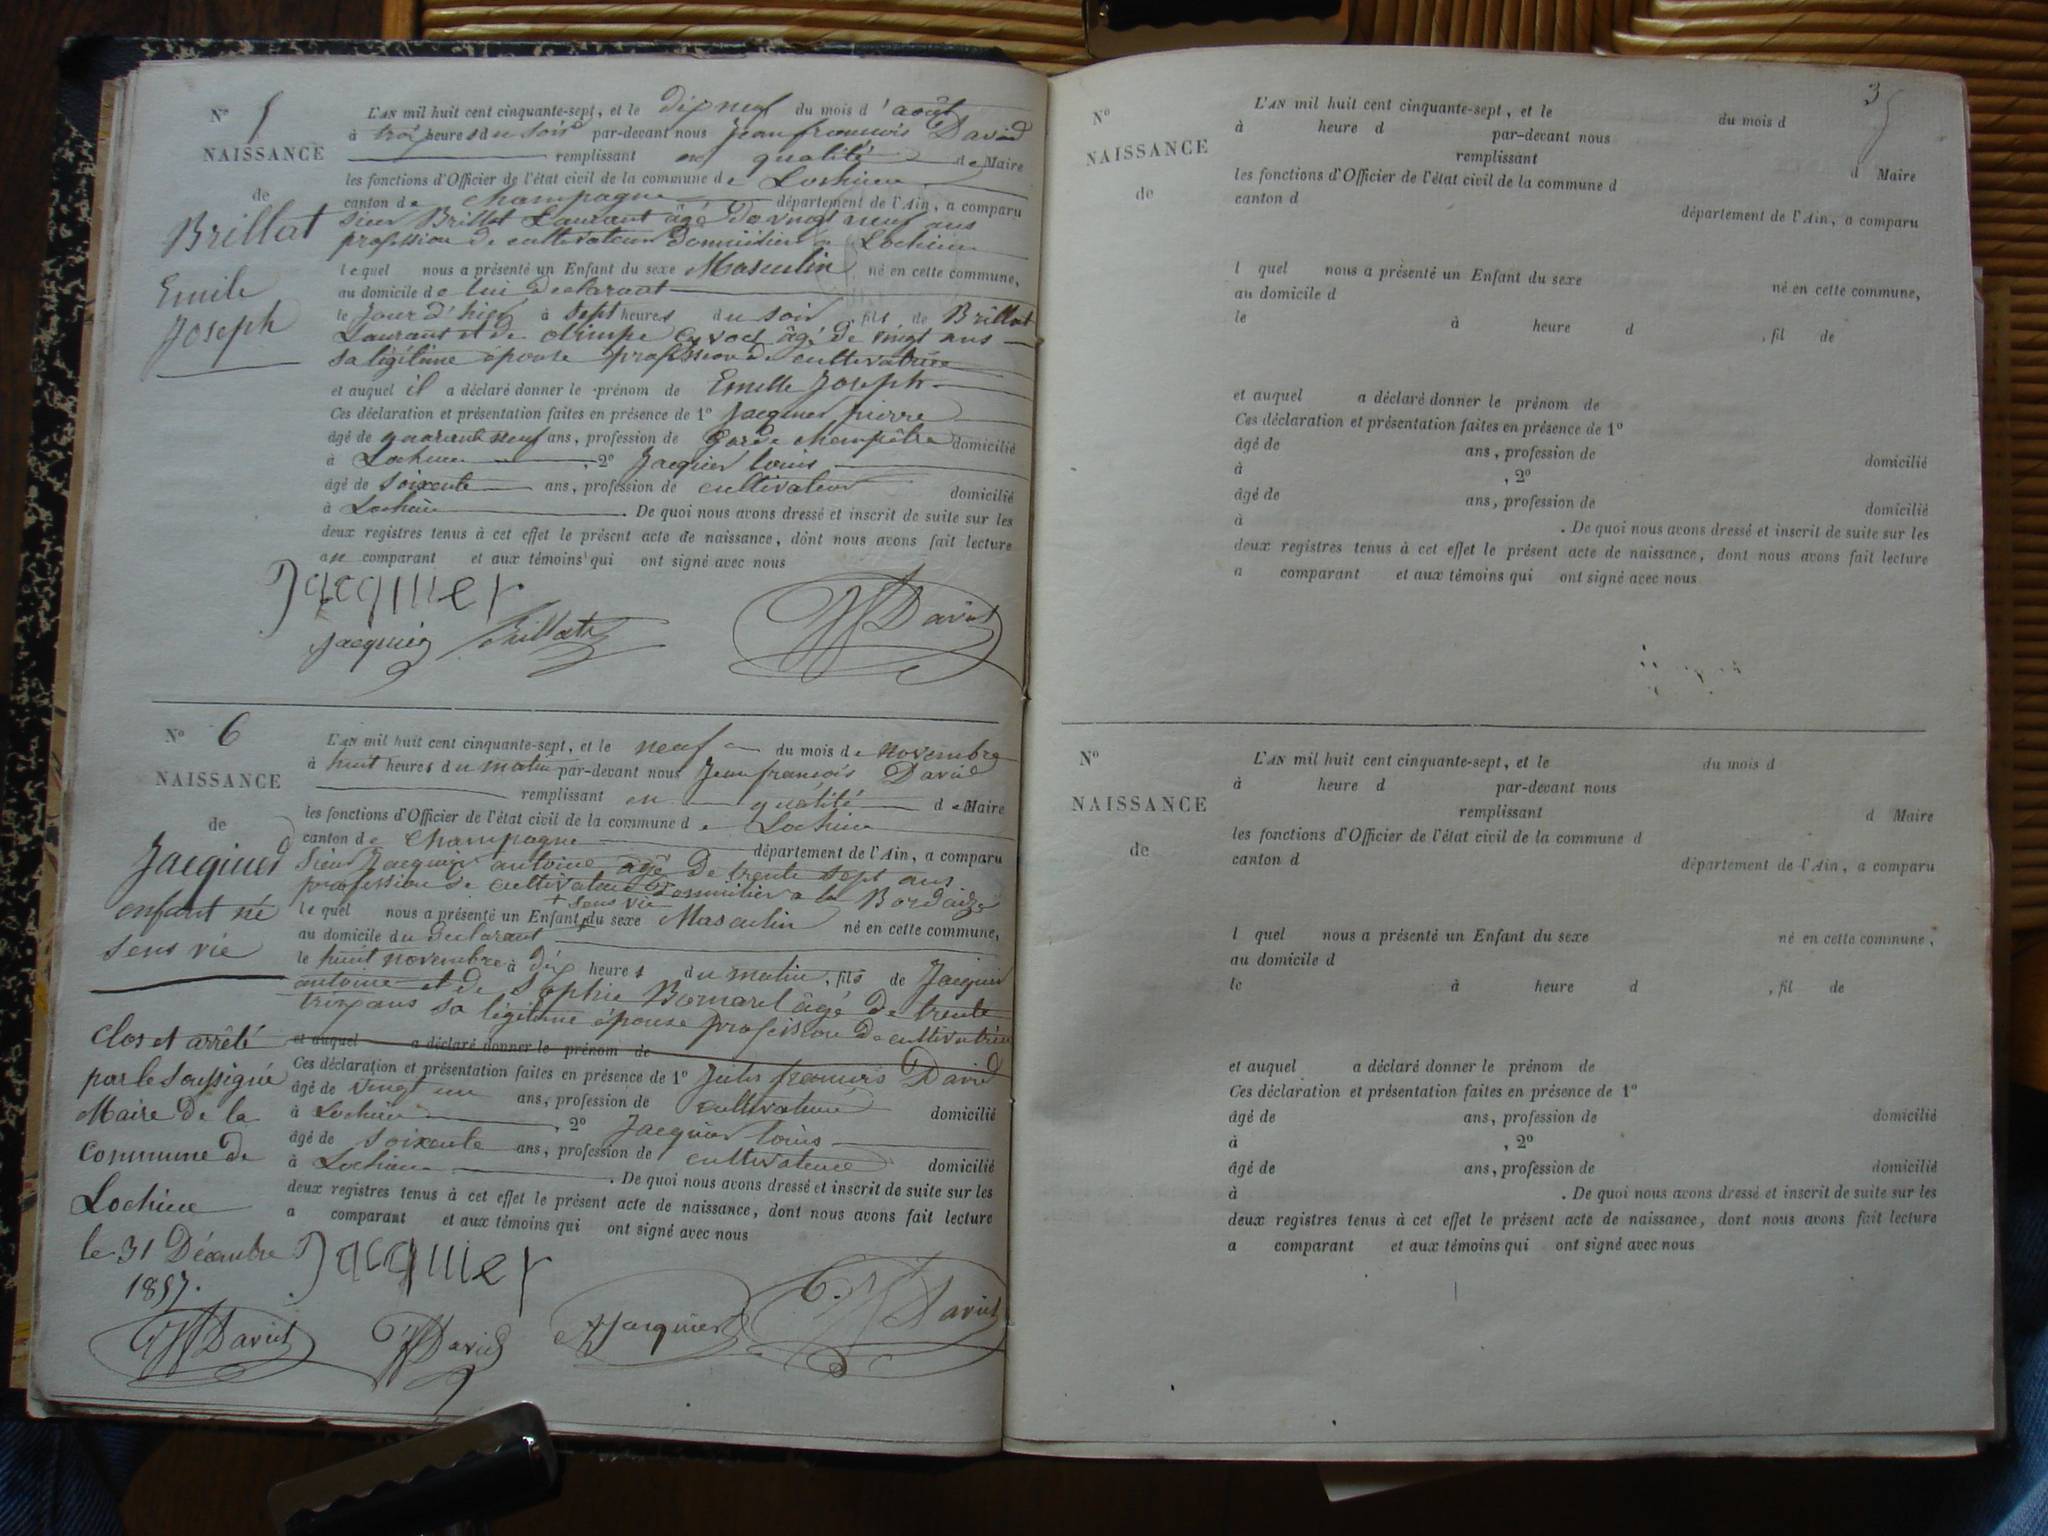 N° 5
NAISSANCE
de
Brillat
Emile
Joseph
L'AN mil huit cent cinquante-sept, et le dix neuf du mois d'août
à trois heures du soir par-devant nous Jean françois David
remplissant en qualité de Maire
les fonctions d'Officier de l'état civil de la commune de Lochieu
canton de Champagne département de l'Ain, a comparu
sieur Brillat Laurant âgé de vingt neuf ans
profession de cultivateur domicilier a Lochieu
lequel nous a présenté un Enfant du sexe Masculin né en cette commune,
au domicile de lui declarant
le Jour d'hier à sept heures du soir, fils de Brillat
Laurant et de olimpe âgé de vingt ans
sa légitime épouse profession de cultivatrice
et auquel il a déclaré donner le prénom de Emille Joseph
Ces déclaration et présentation faites en présence de 1° Jacquier pierre
âgé de quarante neuf ans, profession de Garde champêtre domicilié
à Lochieu, 2° Jacquier louis
âgé de soixente ans, profession de cultivateur domicilié
à Lochieu. De quoi nous avons dressé et inscrit de suite sur les
deux registres tenus à cet effet le présent acte de naissance, dont nous avons fait lecture
au comparant et aux témoins qui ont signé avec nous
Jacquier
Jacquier Brillat David
N° 6
NAISSANCE
de
Jacquier
enfant né
sens vie
L'AN mil huit cent cinquante-sept, et le neuf du mois de novembre
à huit heures du matin par-devant nous Jean françois David
remplissant en qualité de Maire
les fonctions d'Officier de l'état civil de la commune de Lochieu
canton de Champagne département de l'Ain, a comparu
sieur Jacquier antoine âgé de trente sept ans
profession de cultivateur domicilier a la Bordaize
+ sens vie
lequel nous a présenté un Enfant + du sexe Masculin né en cette commune,
au domicile du declarant
le huit novembre à dix heures du matin, fils de Jacquier
antoine et de Sophie Bornarel âgé de trente
trois ans sa légitime épouse profession de cultivatrice
et auquel a déclaré donner le prénom de
Ces déclaration et présentation faites en présence de 1° Jules françois David
âgé de vingt un ans, profession de cultivateur domicilié
à Lochieu, 2° Jacquier louis
âgé de soixente ans, profession de cultivateur domicilié
à Lochieu. De quoi nous avons dressé et inscrit de suite sur les
deux registres tenus à cet effet le présent acte de naissance, dont nous avons fait lecture
a comparant et aux témoins qui ont signé avec nous
Clos et arrêté
par le soussigné
Maire de la
Commune de
Lochieu
le 31 Décembre
1857.
Jacquier
David David Jacquier David
3
N°
NAISSANCE
de
L'AN mil huit cent cinquante-sept, et le du mois d
à heure d par-devant nous
remplissant d Maire
les fonctions d'Officier de l'état civil de la commune d
canton d département de l'Ain, a comparu
l quel nous a présenté un Enfant du sexe né en cette commune,
au domicile d
le à heure d , fil de
et auquel a déclaré donner le prénom de
Ces déclaration et présentation faites en présence de 1°
âgé de ans, profession de domicilié
à , 2°
âgé de ans, profession de domicilié
à . De quoi nous avons dressé et inscrit de suite sur les
deux registres tenus à cet effet le présent acte de naissance, dont nous avons fait lecture
a comparant et aux témoins qui ont signé avec nous
N°
NAISSANCE
de
L'AN mil huit cent cinquante-sept, et le du mois d
à heure d par-devant nous
remplissant d Maire
les fonctions d'Officier de l'état civil de la commune d
canton d département de l'Ain, a comparu
l quel nous a présenté un Enfant du sexe né en cette commune,
au domicile d
le à heure d , fil de
et auquel a déclaré donner le prénom de
Ces déclaration et présentation faites en présence de 1°
âgé de ans, profession de domicilié
à , 2°
âgé de ans, profession de domicilié
à . De quoi nous avons dressé et inscrit de suite sur les
deux registres tenus à cet effet le présent acte de naissance, dont nous avons fait lecture
a comparant et aux témoins qui ont signé avec nous